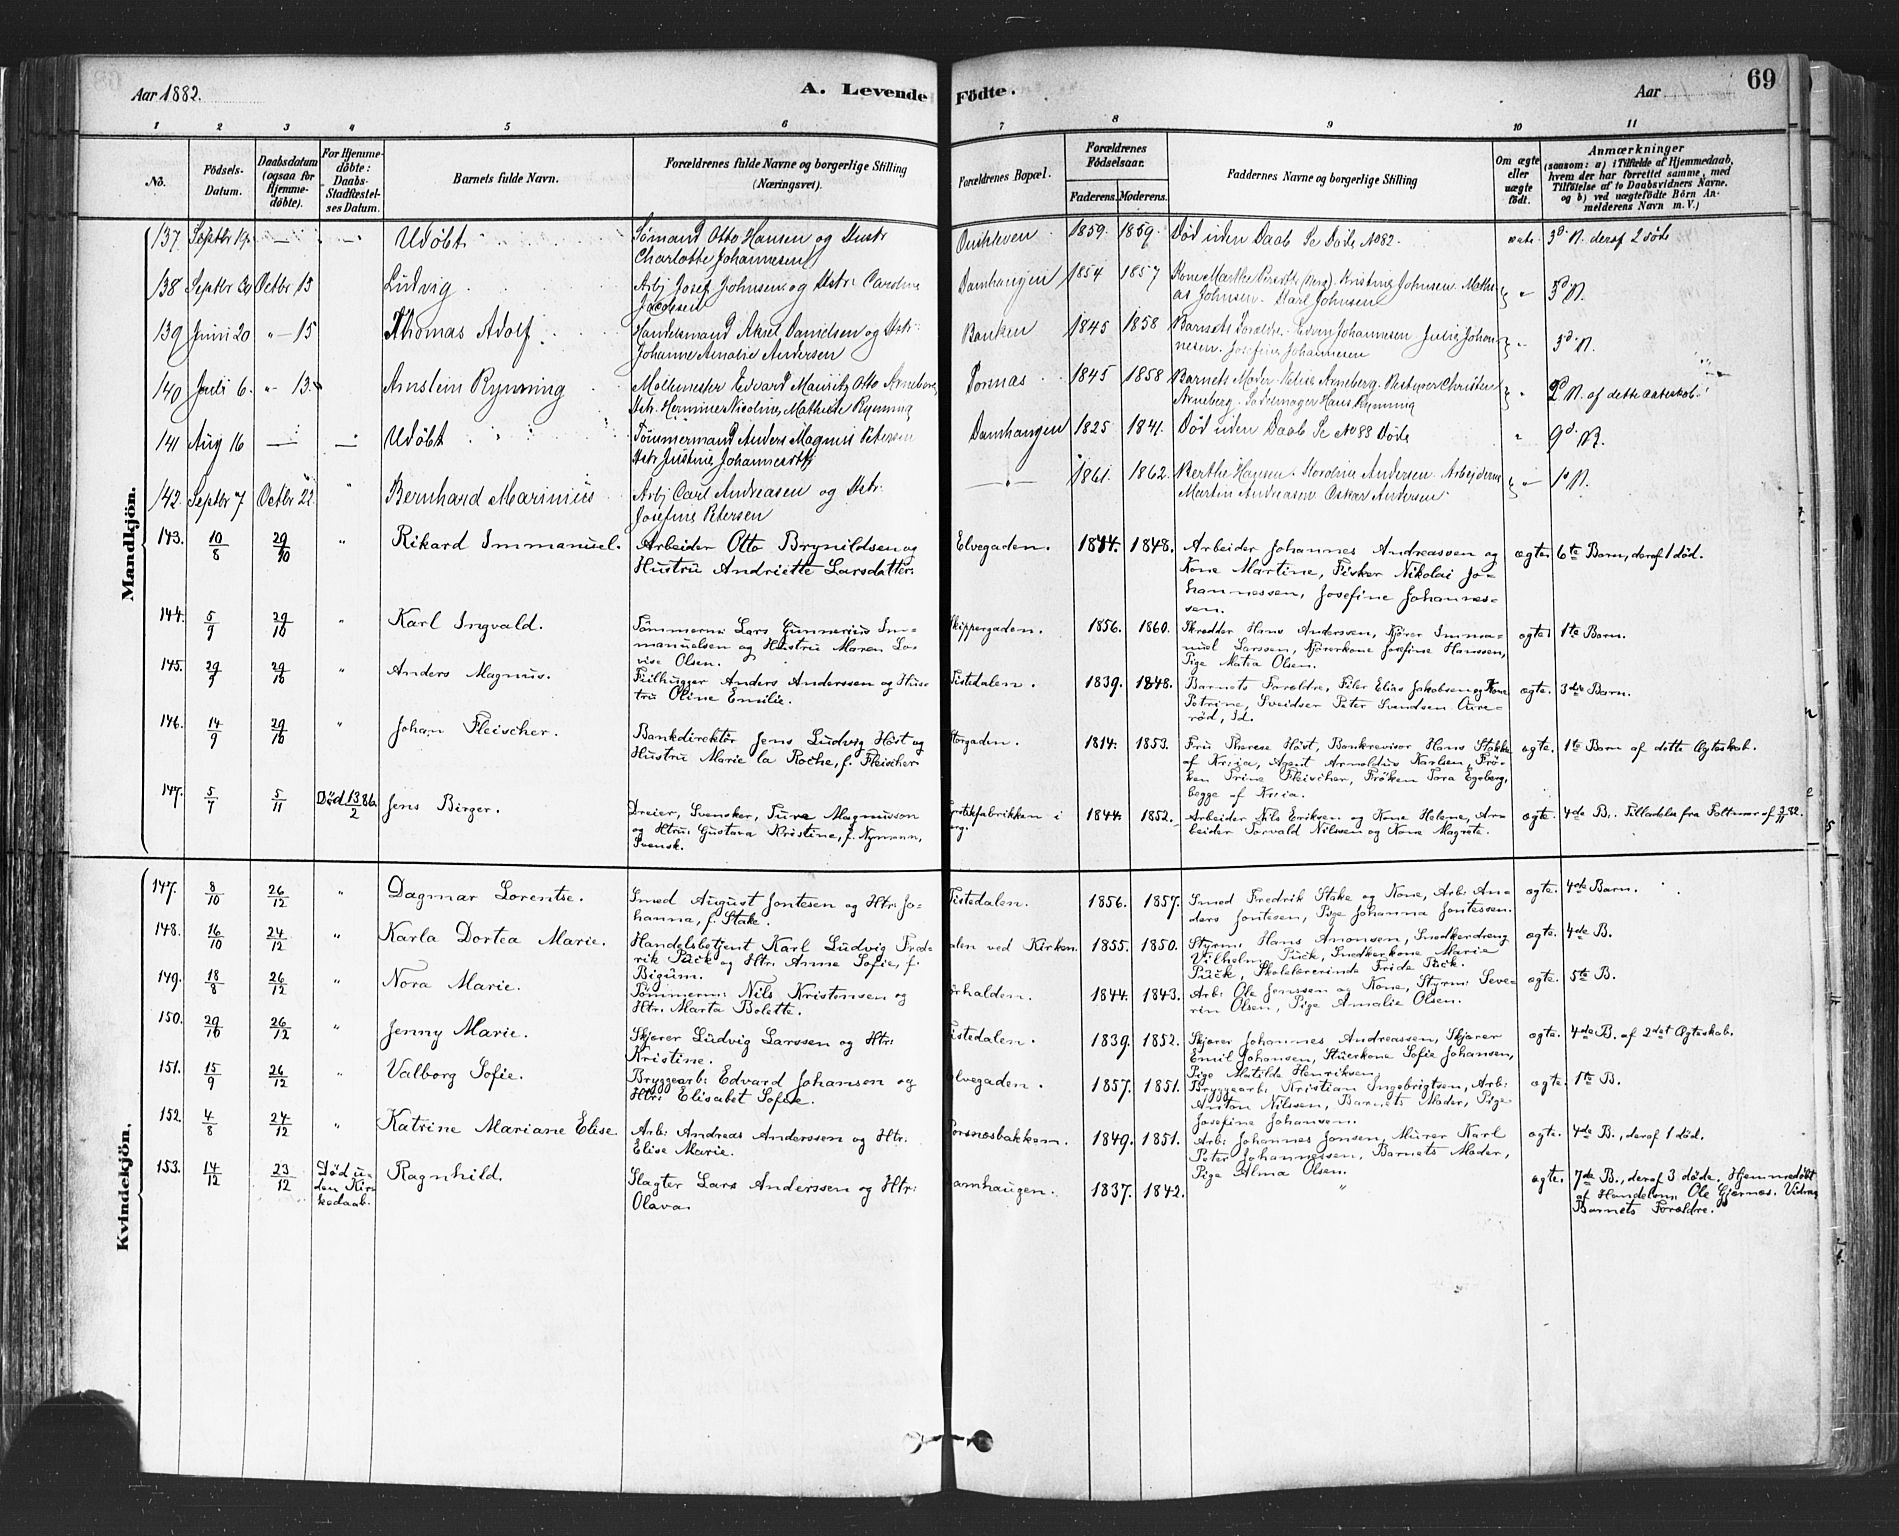 Aar 1882.
A. Levende Födte.
Aar
69
1 2 3 4 5 6 7 8 9 10 11
No.
Födsels-Datum.
Daabsdatum (ogsaa for Hjemme-döbte).
For Hjemme-döbte: Daabs-Stadfæstel-ses Datum.
Barnets fulde Navn.
Forældrenes fulde Navne og borgerlige Stilling (Næringsvei).
Forældrenes Bopæl.
Forældrenes Födselsaar.
Faderens. Moderens.
Faddernes Navne og borgerlige Stilling
Om ægte eller uægte födt.
Anmærkninger
(saasom: a) i Tilfælde af Hjemmedaab, hvem der har forrettet samme, med Tilföielse af to Daabsvidners Navne, og b) ved uægtefödte Börn An-melderens Navn m. V.)
Mandkjön.
137. Septbr 19. — — Udöbt Sömand Otto Hansen og Hustr 1859. 1859. Död uden Daab Se Döde No 82. 3d N. deraf 2 döde
Charlotte Johannesen
138 Septbr Octbr 15 Ludvig Arb. Josef Johnsen og Hstr: Caroline Damhaugen 1854 1857 Kristine Johnsen 3d N.
Jacobsen Karl Johnsen
139 Juni 20 " - 15 Thomas Adolf. Handelsmand Aksel Danielsen og Hstr: Banken 1845 1858 Barnets Forældre. Edvin Johannesen Julie Johan 3d N.
Johanne Amalie Andersen nesen. Josefine Johannesen
140 Juli 6. " 13 Arnstein Rynning Möllemester Edvard Mauritz Otto Arneberg, 1845 1858 Barnets Moder. Arneberg. 2d N. af dette ægteskab.
Hstr. Hermine Nicoline Mathilde Rynning Arneberg. Sadelmager Hans Rynning
141 Aug 16 — — Udöbt Tömmermand Anders Magnus Petersen Damhaugen 1825 1841. Död uden Daab Se No 88 Döde " 9d. N.
Hstr Justine Johannesdtr
142. Septbr 7 Octbr 22 " Bernhard Marinius Arbj Carl Andreasen og Hstr: — " — 1861. 1862. Berthe Hansen. Andersen. 1st N.
Josefine Petersen Martin Andreasen Oskar Andersen
143. 10/8 29/10 " Rikard Immanuel. Arbeider Otto Brynildsen og Elvegaden. 1844. 1848. Arbeider Johannes Andreassen og ægte. 6te Barn, deraf 1 död.
Hustru Andriette Larsdatter: Kone Martine, Fisker Nikolai Jo-
hannessen, Josefine Johannes-
sen.
144. 5/9 29/10 " Karl Ingvald. Tömmerm: Lars Gunnerius Im- Skippergaden. 1856. 1860. Skredder Hans Anderssen, Kjörer Imma- ægte 1te Barn.
manuelsen og Hustru Maren Lo- nuel Larssen, Kjörerkone Josefine Hanssen,
vise Olsen. Pige Matea Olsen.
145. 29/9 29/10 " Anders Magnus. Feilhugger Anders Anderssen og Hus- Tistedalen. 1839. 1848. Barnets Forældre, Filer Elias Jakobsen og Kone ægte. 3die Barn.
tru Oline Emilie. Petrine, Sveidser Peter Svendsen Aure-
röd, Id.
146. 14/9 29/10 " Johan Fleischer. Bankdirektör Jens Ludvig Höst og Storgaden. 1814. 1853. Fru Therese Höst, Bankrevisor Hans Stokke ægte. 1te Barn af dette Ægteskab.
Hustru Marie la Roche, f. Fleischer af Kr:ia, Agent Arnoldus Karlsen, Frö-
ken Trine Fleischer, Fröken Tora Egeberg,
begge af Kr:ia.
147. 5/7 5/11 Död 13/2 86. Jens Birger. Dreier, Svensker, Ture Magnusson 1844. 1852. Arbeider Nils Eriksen og Kone Helene, Ar- ægte. 4de B.
og Htru: Gustava Kristine, f. Nyman, beider Torvald Nilssen og Kone Magrete.
Svensk.
Kvindekjön.
147. 8/10 26/12 " Dagmar Lorentse. Smed August Jontesen og Htr: Jo- Tistedalen. 1856. 1857. Smed Fredrik Stake og Kone, Arb: An- ægte. 4de Barn.
hanna, f. Stake. ders Jontesen, Pige Johanna Jontessen.
148. 16/10 24/12 " Karla Dortea Marie. Handelsbetjent Karl Ludvig Frede- alen ved Kirken 1855. 1850. Styrm: Hans Amonsen, Snedkerdreng ægte. 4de B.
rik Pück og Htr: Anne Sofie, f. Vilhelm Pück, Snedkerkone Maria
Bigum. Pück, Skolelærerinde Frida Pück.
149. 18/8 26/12 " Nora Marie. Tömmerm: Nils Kristensen og 1844. 1843. Arb: Ole Jenssen og Kone, Styrm: Seve- ægte. 5te B.
Htr: Marta Bolette. rin Olsen, Pige Amalie Olsen.
150. 29/10 26/12 " Jenny Marie. Skjærer Ludvig Larssen og Htr: Tistedalen. 1839. 1852. Skjærer Johannes Andreassen, Skjærer ægte. 4de B. af 2det Ægteskab.
Kristine. Emil Johansen, Stuerkone Sofie Johansen,
Pige Matilde Henriksen.
151. 15/9 26/12 " Valborg Sofie. Bryggearb: Edvard Johansen og Elvegaden. 1857. 1851. Bryggearb: Kristian Ingebrigtsen, Arb: ægte. 1te B.
Htr: Elisabet Sofie. Anton Nilssen, Barnets Moder, Pige
Josefine Johansen.
152. 4/8 24/12 " Katrine Mariane Elise. Arb: Andreas Anderssen og Htr: Porsnæsbakken. 1849. 1851. Arb: Johannes Jonsen, Murer Karl ægte. 4de B., deraf 1 död.
Elise Marie. Peter Johannessen, Barnets Moder,
Pige Alma Olsen.
153. 14/12 23/12 Död u-den Kir-kedaab. Ragnhild. Slagter Lars Anderssen og Htr: Damhaugen. 1837. 1842. " ægte. 7de B., deraf 3 döde. Hjemmedöbt
Olava. af Handelsm: Ole Gjærnæs. Vidner
Barnets Forældre.